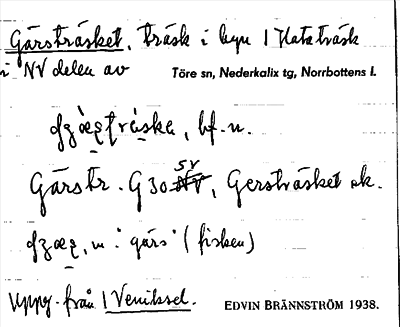 Gärsträsket, träsk i byn 1 Flataträsk
i NV delen av Töre sn, Nederkalix tg, Norrbottens l.
bf. n.
Gärstr. G 30 SV, Gersträsket ek.
m. "gärs" (fisken)
Uppg. från 1 Veniksel. EDVIN BRÄNNSTRÖM 1938.